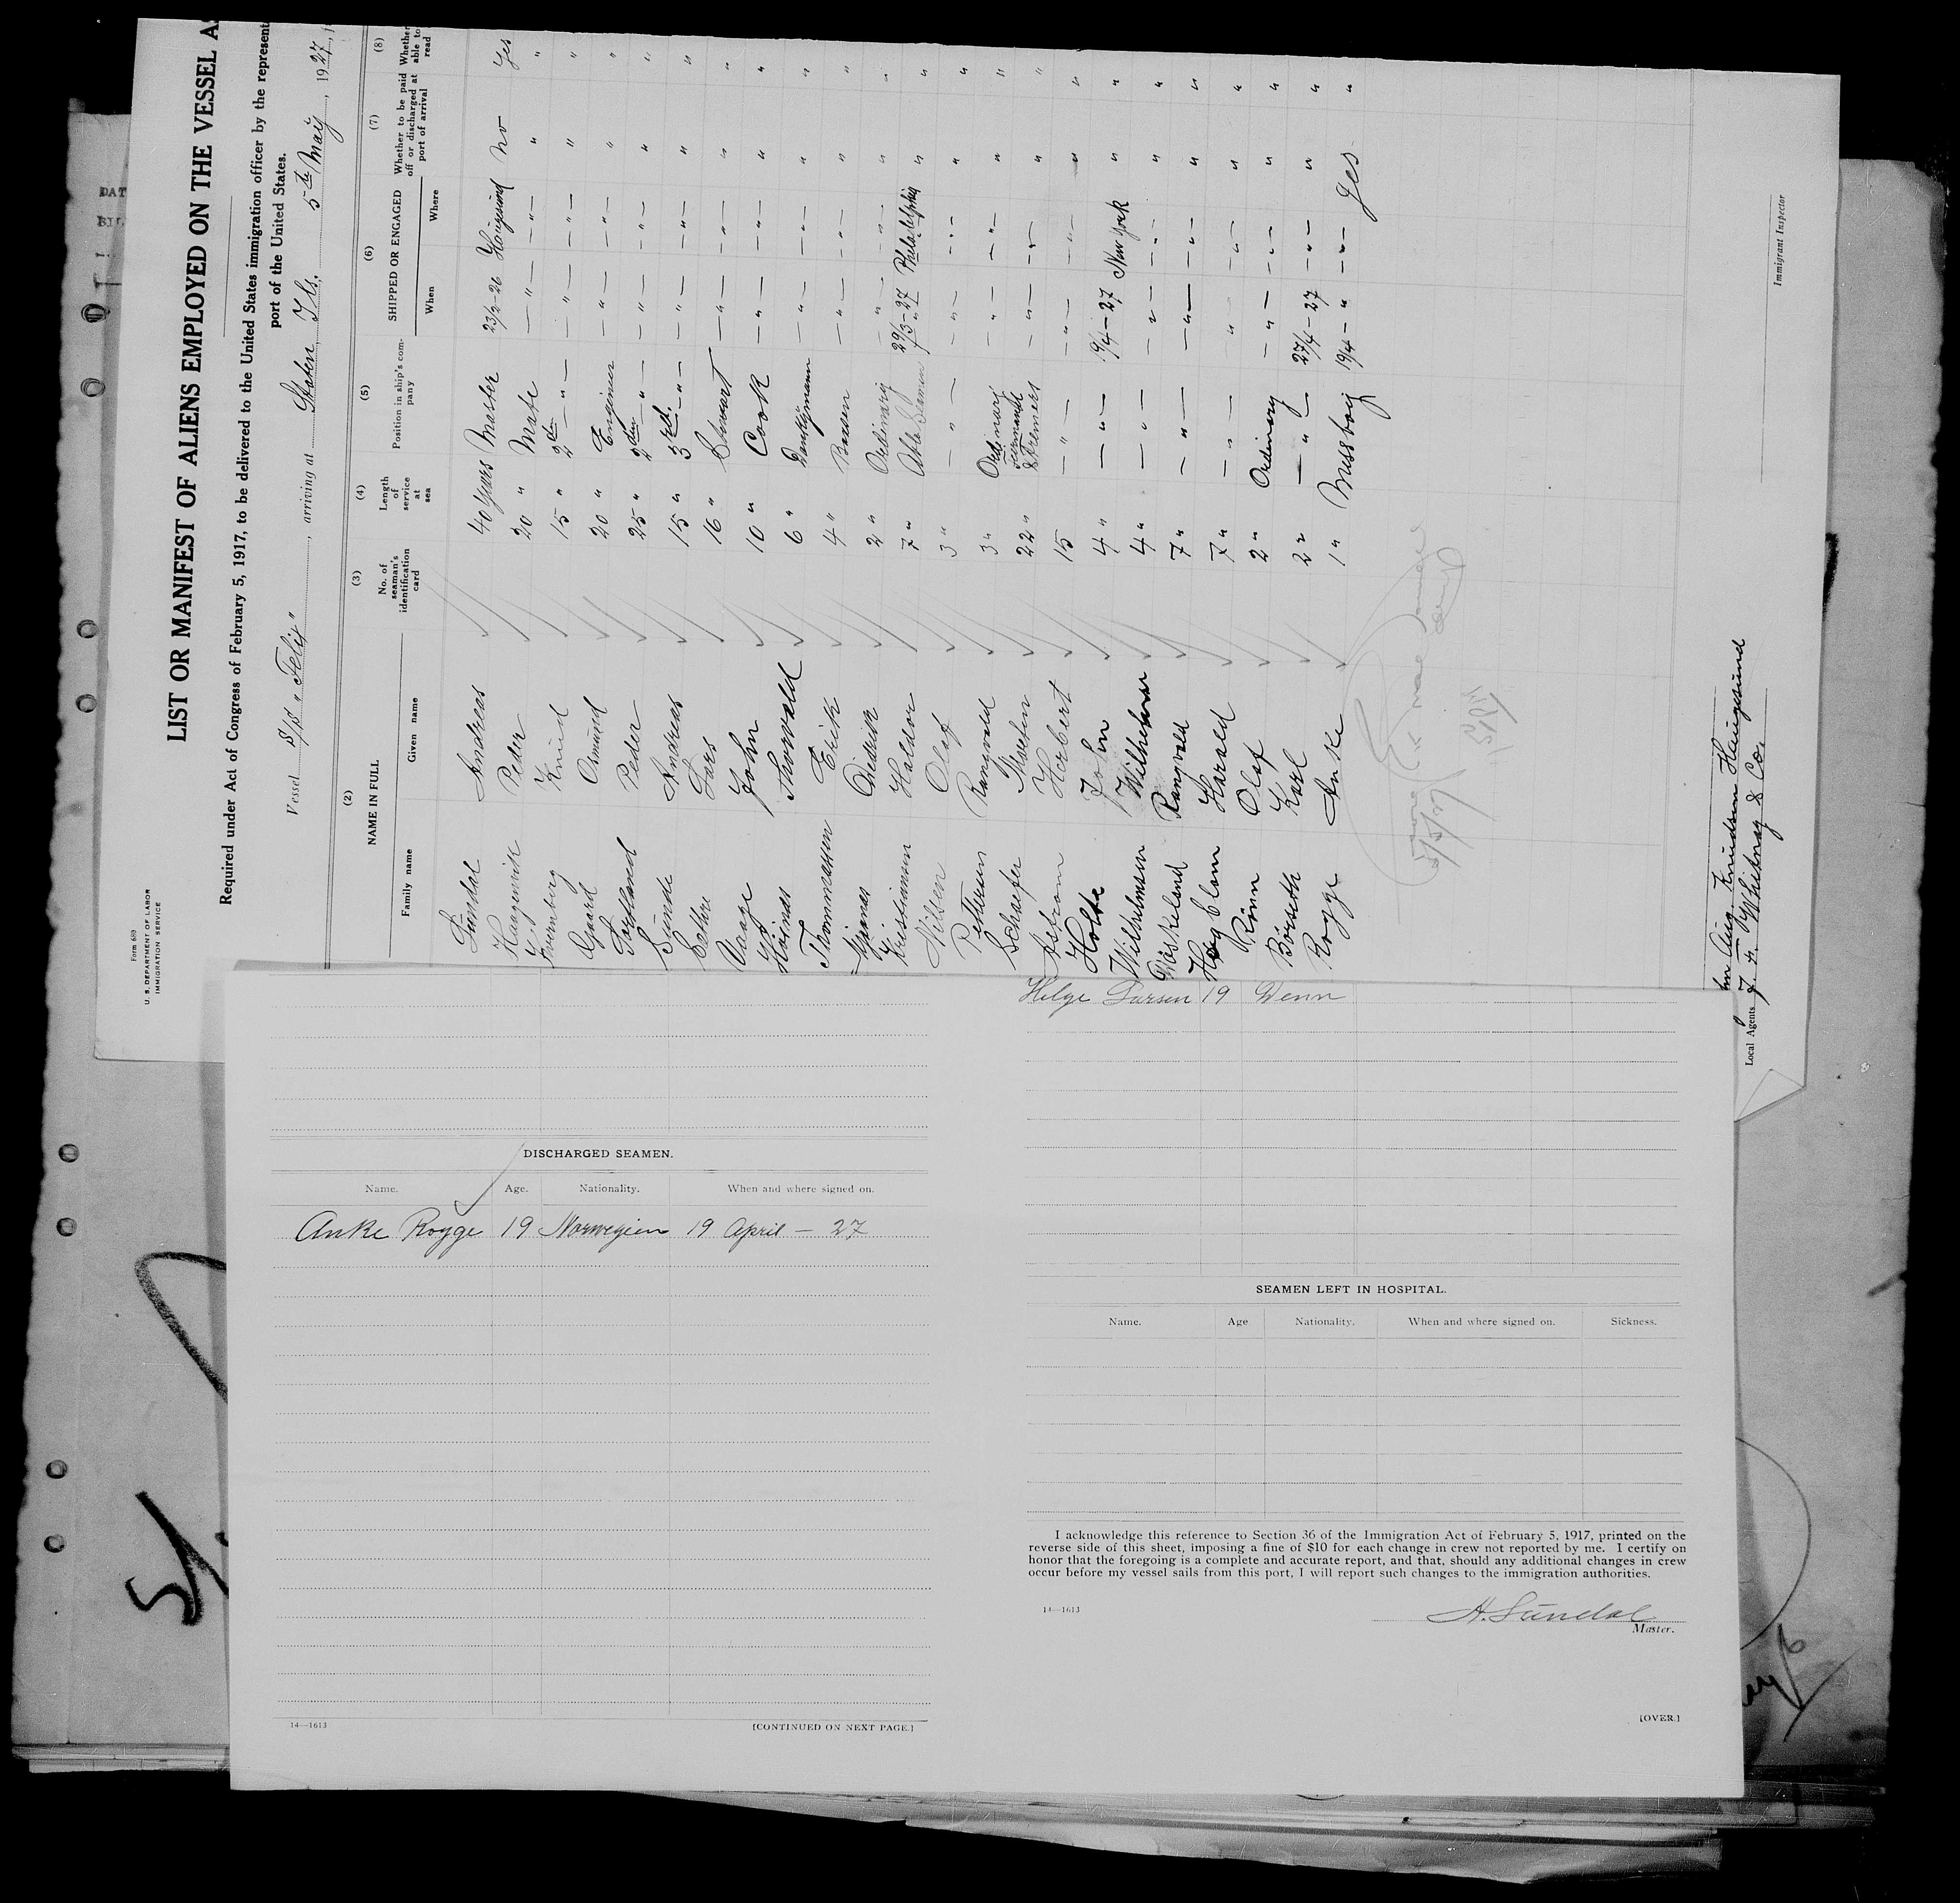 Form 689
U. S. DEPARTMENT OF LABOR
IMMIGRATION SERVICE
LIST OR MANIFEST OF ALIENS EMPLOYED ON THE VESSEL A
Required under Act of Congress of February 5, 1917, to be delivered to the United States immigration officer by the represent
port of the United States.
Vessel S/S "Felix", arriving at Staten Isl. 5th May, 1927
(2) (3) (4) (5) (6) (7) (8)
NAME IN FULL No. of seaman's identification card Length of service at sea Position in ship's company SHIPPED OR ENGAGED Whether to be paid off or discharged at port of arrival Whether able to read
Family name Given name When Where
Sundal Andreas 40 years Master 23/2-26 Haugesund No Yes
Haagenvik Peder 20 " Mate — " — — " — " "
Knud 15 " 2den — " — — " — — " — " "
Osmund 20 " Enginner — " — — " — " "
Peder 25 " 2den — " — — " — — " — " "
Sunde Andreas 15 " 3rd. — " — — " — — " — " "
Lars 16 " Stuart — " — — " — " "
Vaage John 10 " Cook — " — — " — " "
Thorvald 6 " Dankymann — " — — " — " "
Thommassen Erik 4 " — " — — " — " "
Diedrik 2 " Ordinary — " — — " — " "
Kristiansen Haldor 7 " Able Seamen 29/3-27 Philadelphia " "
Nilsen Olaf 3 " — " — — " — — " — " "
Pettersen Rangvald 3 " Ordinary — " — — " — " "
Schaefer 22 " & Firemens — " — — " — " "
Herbert 15 — " — — " — — " — " "
Holte John 4 " — " — 19/4-27 New York " "
Wilhelmsen Wilhelm 4 " — " — — " — — " — " "
Rangvald 7 " — " — — " — — " — " "
Harald 7 " — " — " — " — " "
Olaf 2 " Ordinary — " — — " — " "
Börseth Karl 2 " — " — 27/4-27 — " — " "
Rogge Anke 1 " Messboy 19/4- " — " — Yes "
5/5/27
Aug. Knudsen Haugesund
Local Agents J. F. Whitney & Co.
Immigrant Inspector
Helge Larsen 19
DISCHARGED SEAMEN.
Name. Age. Nationality. When and where signed on.
Anke Rogge 19 Norwegien 19 April — 27
14—1613
[CONTINUED ON NEXT PAGE.]
SEAMEN LEFT IN HOSPITAL.
Name. Age Nationality. When and where signed on. Sickness.
I acknowledge this reference to Section 36 of the Immigration Act of February 5, 1917, printed on the
reverse side of this sheet, imposing a fine of $10 for each change in crew not reported by me. I certify on
honor that the foregoing is a complete and accurate report, and that, should any additional changes in crew
occur before my vessel sails from this port, I will report such changes to the immigration authorities.
14—1613
A. Sundal
Master.
[OVER.]